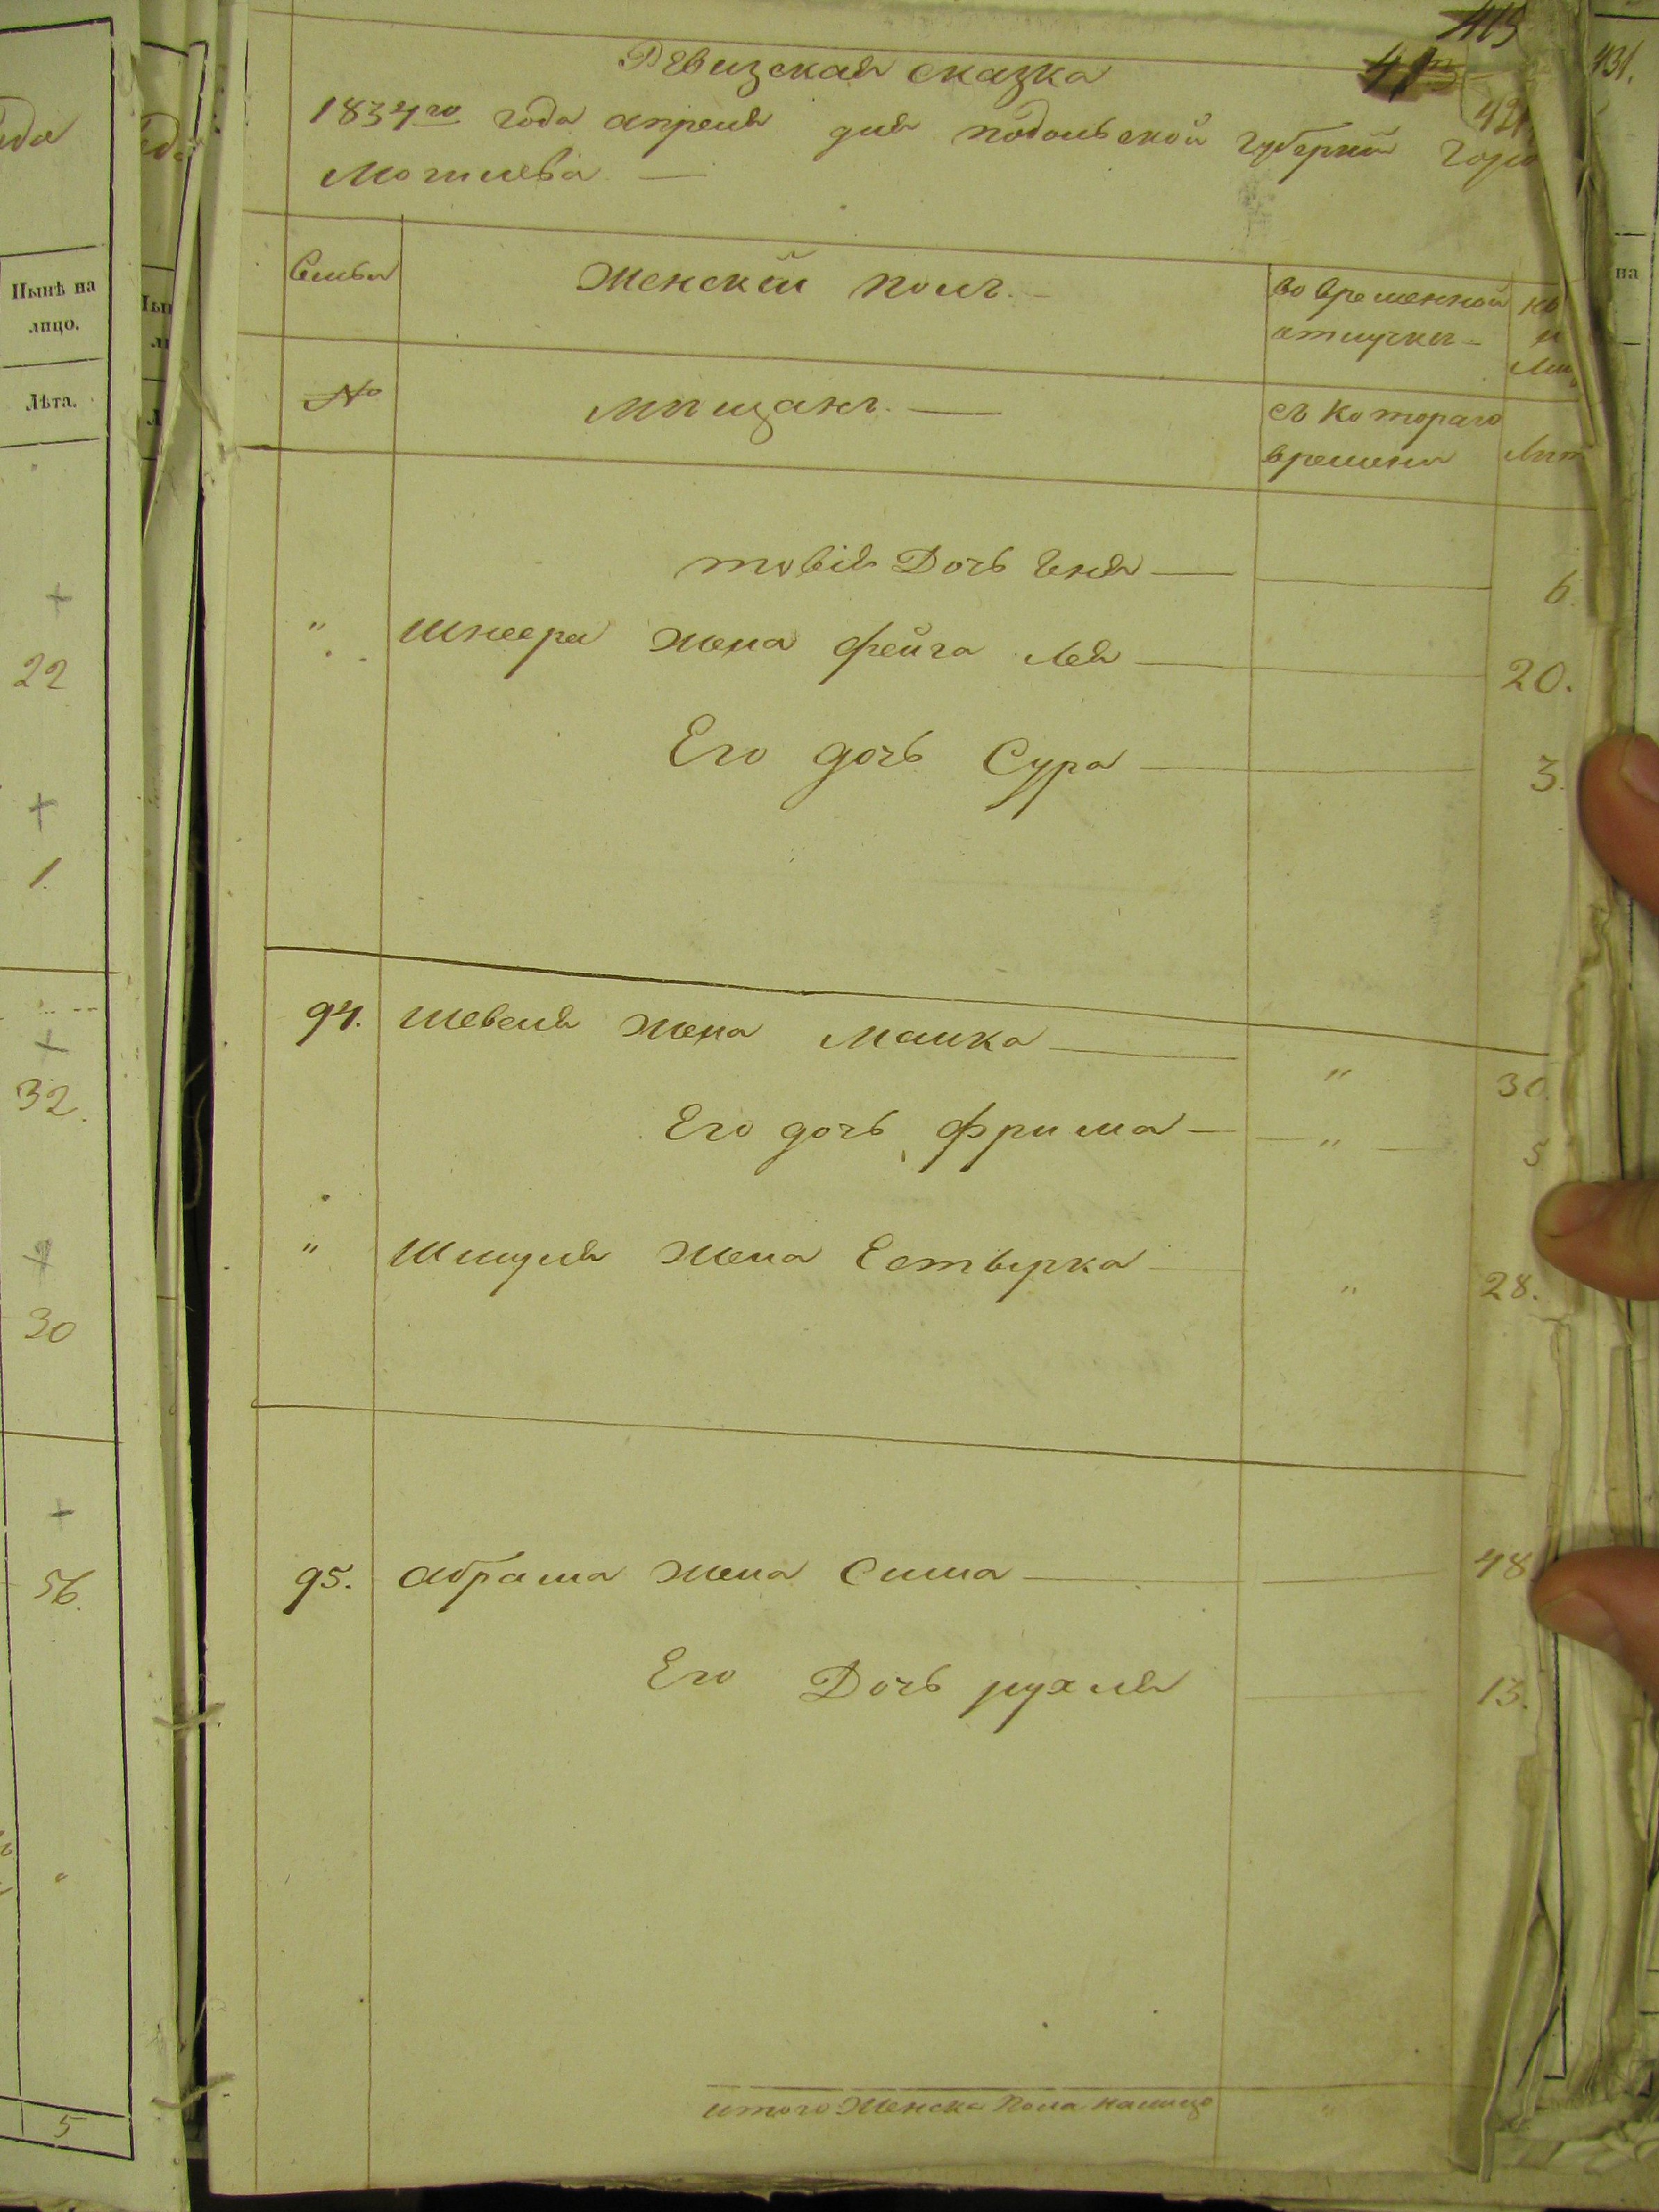 415
421
431.
Ревизская сказка
1834го года апреля дня подольской губернии Горо
Могилева —
Семьи
Женский полъ. —
во временной
отлучки —
№
мпщанъ. —
съ котораго
времени
Лпт
товія Дочь Геня — 6.
" Шнеера жена фейга лея — 20.
Его дочь Сура — 3.
94. Шевеля жена Малка — " 30.
Его дочь фрима — " 5
" Шмуля жена Естырка — " 28.
95. Абрама жена Сима — 48
Его Дочь рухля 13.
итого Женска Пола налицо "
Нынѣ на
лицо.
Лѣта.
22
1.
32.
30
56.
5
на